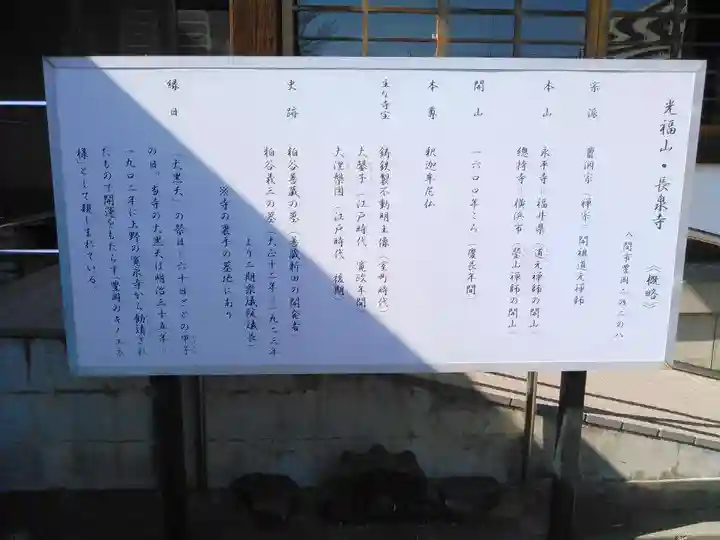 光福山・長泉寺 《概略》
入間市豊岡二の二の八
宗派 曹洞宗（禅宗）開祖道元禅師
本山 永平寺－福井県（道元禅師の開山）
總持寺－横浜市（瑩山禅師の開山）
開山 一六〇〇年ころ（慶長年間）
本尊 釈迦牟尼仏
主な寺宝 鋳鉄製不動明王像（室町時代）
大磬子（江戸時代 寛政年間）
大涅槃図（江戸時代 後期）
史跡 粕谷善蔵の墓（善蔵新田の開発者）
粕谷義三の墓（大正十二年－一九二三年
より二期衆議院議長）
※寺の裏手の墓地にあり
縁日 「大黒天」の祭は－六十日ごとの甲子
の日。当寺の大黒天は明治三十五年－
一九〇二年に上野の寛永寺から勧請され
たもので開運をもたらす「豊岡のキノエネ
様」として親しまれている。